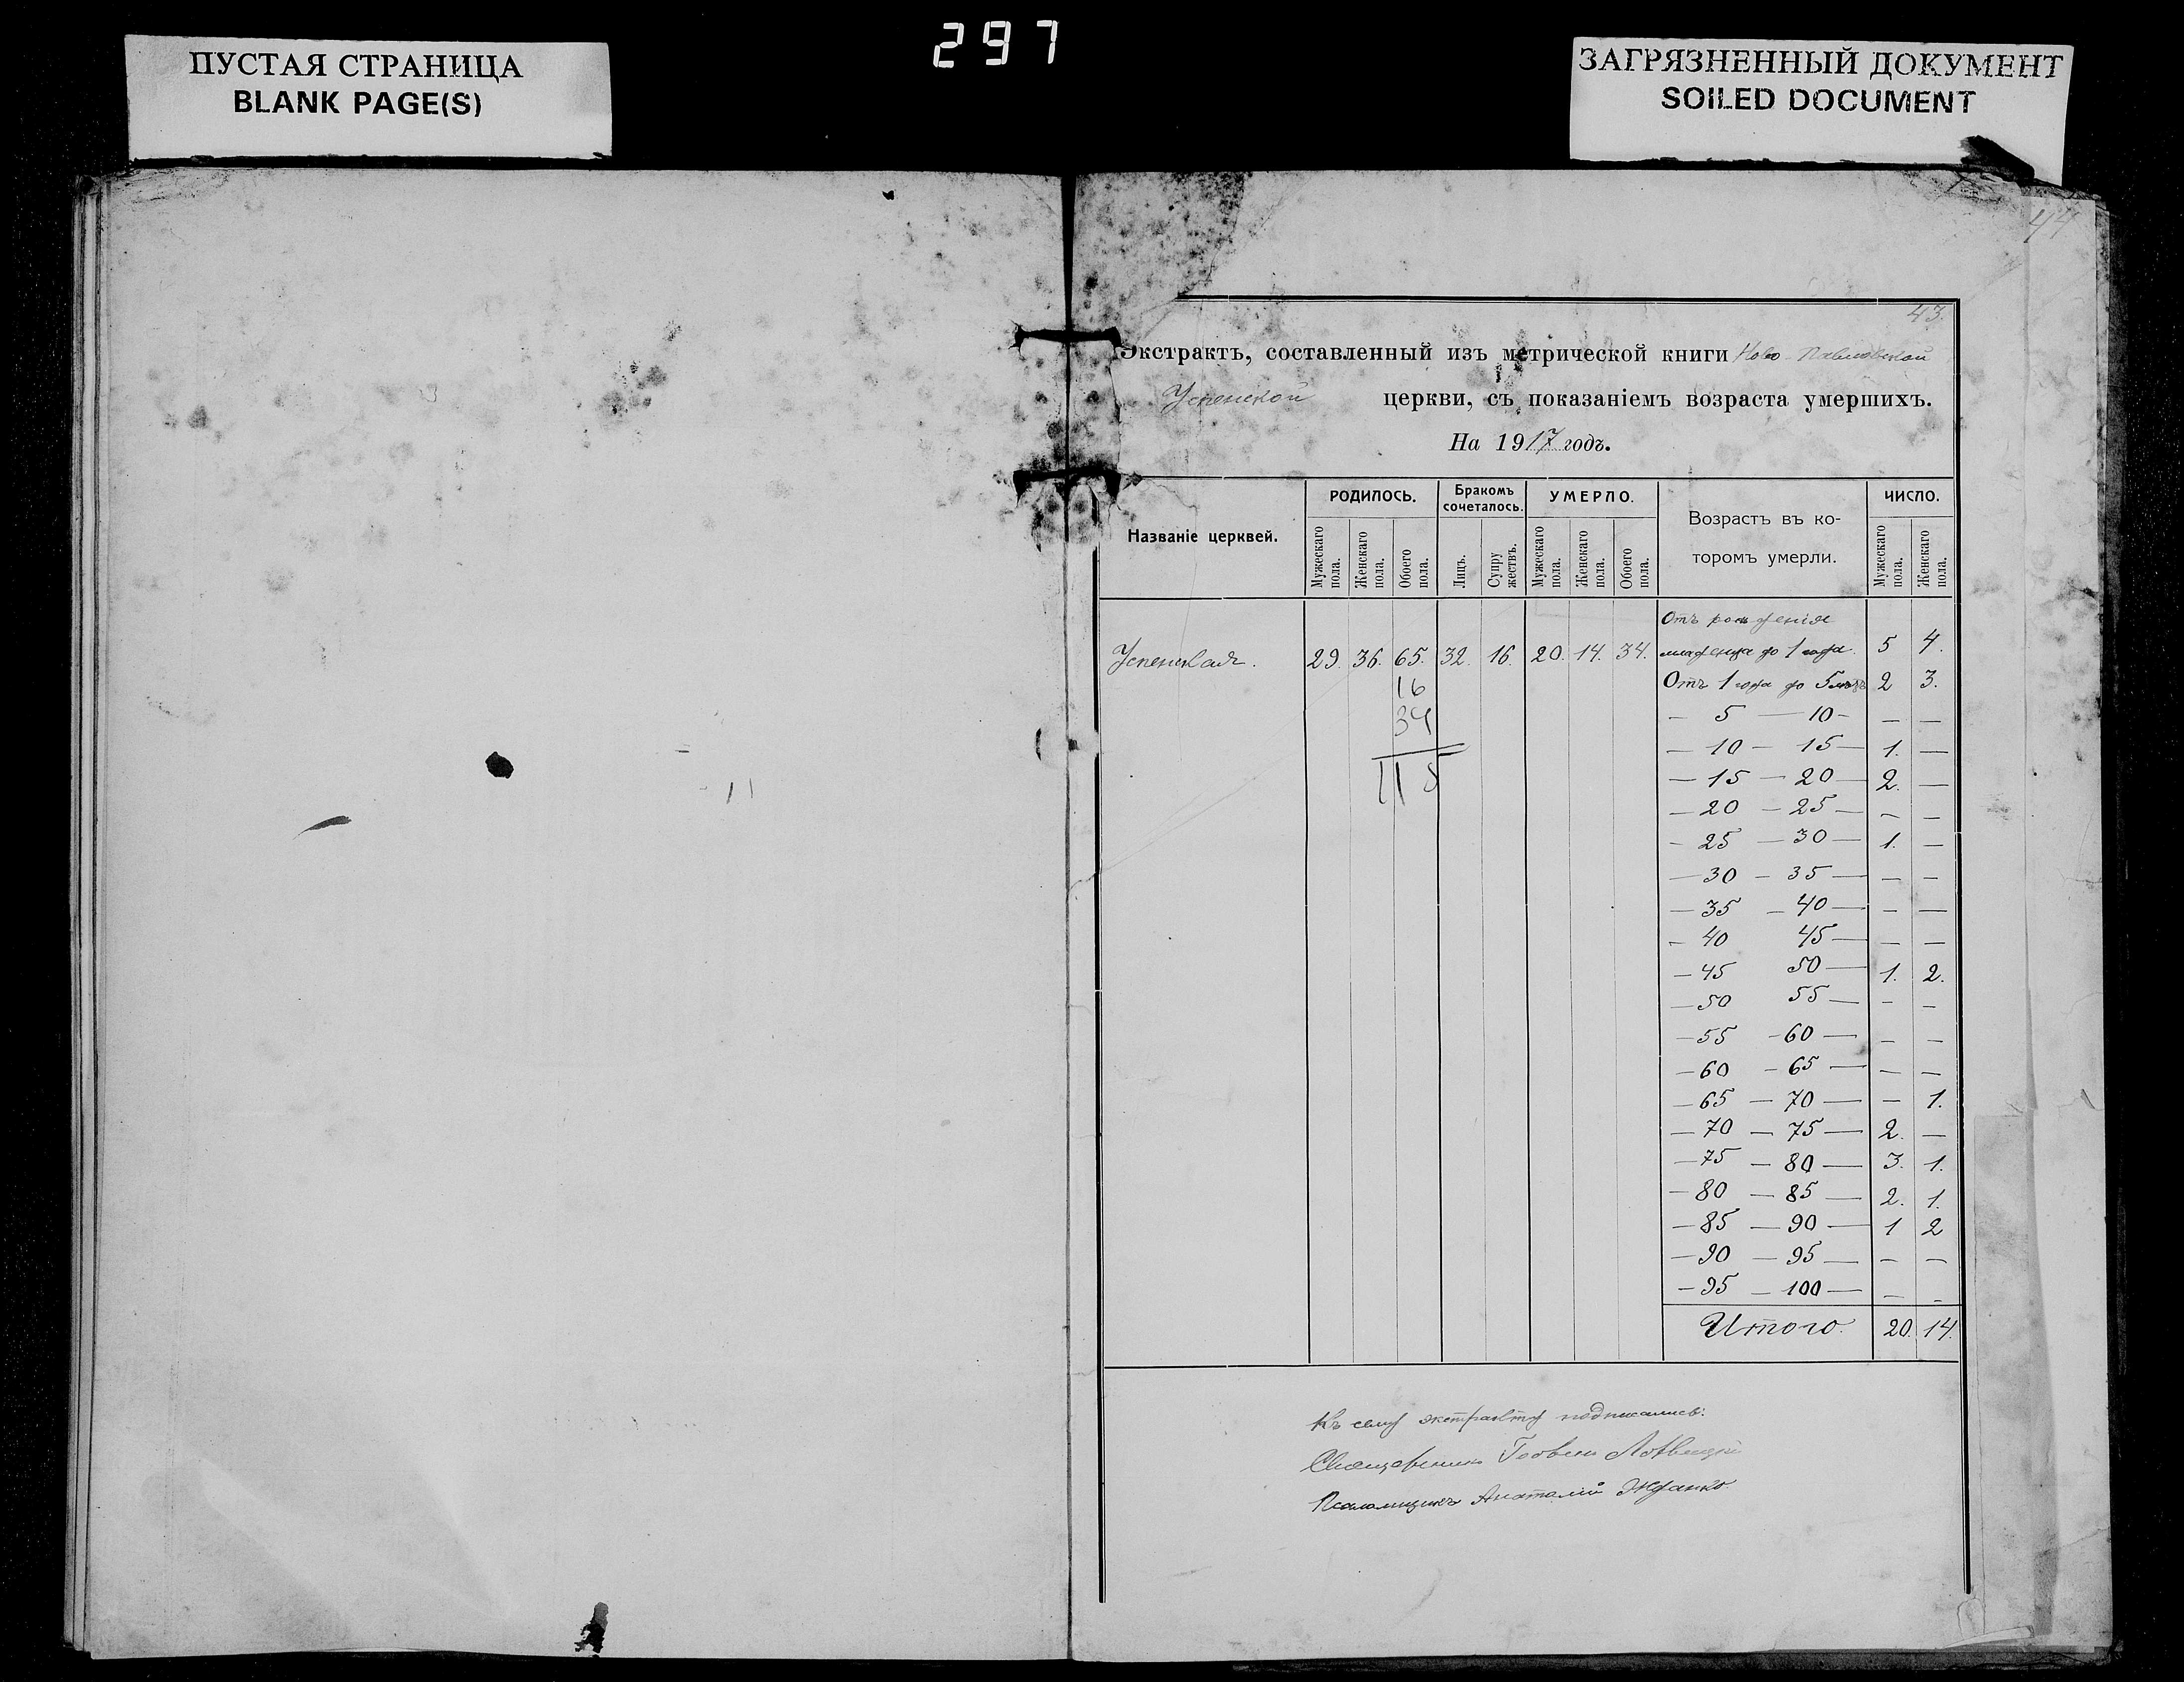 297
ПУСТАЯ СТРАНИЦА
BLANK PAGE(S)
ЗАГРЯЗНЕННЫЙ ДОКУМЕНТ
SOILED DOCUMENT
44
43.
Экстрактъ, составленный изъ метрической книги Ново-Павловской
Успенской церкви, съ показаніемъ возраста умершихъ.
На 1917 годъ.
Названіе церквей. РОДИЛОСЬ. Бракомъ сочеталось. УМЕРЛО. Возрастъ въ которомъ умерли. ЧИСЛО.
Мужескаго пола. Женскаго пола. Обоего пола. Лицъ. Супружествъ. Мужескаго пола. Женскаго пола. Обоего пола. Мужескаго пола. Женскаго пола.
Отъ рожденія
Успенская. 29. 36. 65. 32. 16. 20. 14. 34. младенца до 1 года. 5 4.
16 Отъ 1 года до 5 лѣтъ 2 3.
34 — 5 — 10 — — —
— 10 — 15 — 1. —
118 — 15 — 20 — 2. —
— 20 — 25 — — —
— 25 — 30 — 1. —
— 30 — 35 — — —
— 35 — 40 — — —
— 40 45 — — —
— 45 50 — 1. 2.
— 50 55 — — —
— 55 — 60 — — —
— 60 — 65 — — —
— 65 — 70 — — 1.
— 70 — 75 — 2. —
— 75 — 80 — 3. 1.
— 80 — 85 — 2. 1.
— 85 — 90 — 1 2
— 90 — 95 — — —
— 95 — 100 — — —
Итого. 20. 14.
Къ сему экстракту подписались:
Священникъ
Псаломщикъ Анатолій Жданко